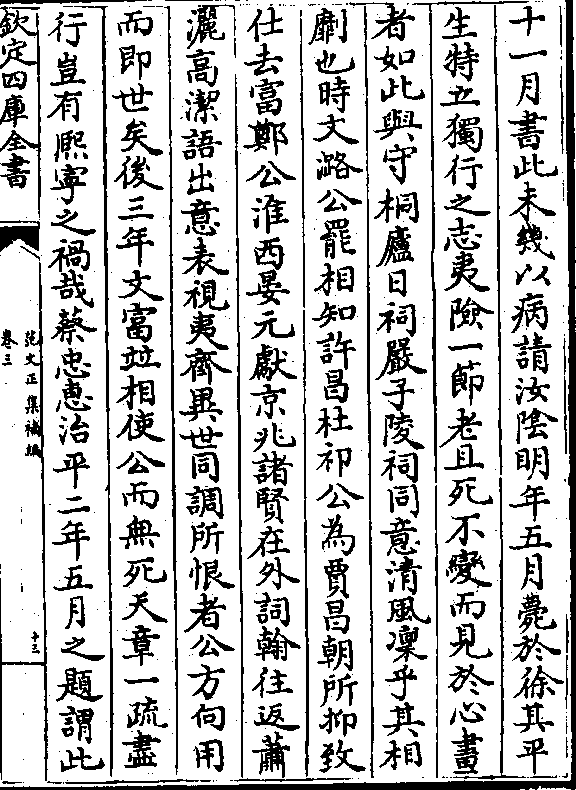 十一月書此未幾以病請汝陰明年五月薨於徐其平
生特立獨行之志夷險一節老且死不變而見於心畫
者如此與守桐廬日祠嚴子陵祠同意清風凜乎其相
劘也時文潞公罷相知許昌杜祁公為賈昌朝所抑致
仕去富鄭公淮西晏元獻京兆諸賢在外詞翰往返蕭
灑高潔語出意表視夷齊異世同調所恨者公方向用
而即世矣後三年文富並相使公而無死天章一疏盡
行豈有熙寧之禍哉蔡忠惠治平二年五月之題謂此
欽定四庫全書
范文正集補編
卷三
十三